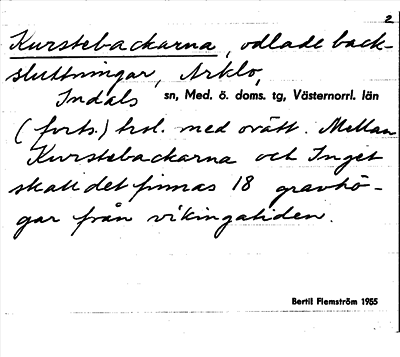 2
Kurstebackarna, odlade back-
sluttningar, Arklo,
Indals sn, Med. ö. doms. tg, Västernorrl. län
(forts.) trol. med orätt. Mellan
Kurstebackarna och Inget
skall det finnas 18 gravhö-
gar från vikingatiden.
Bertil Flemström 1955